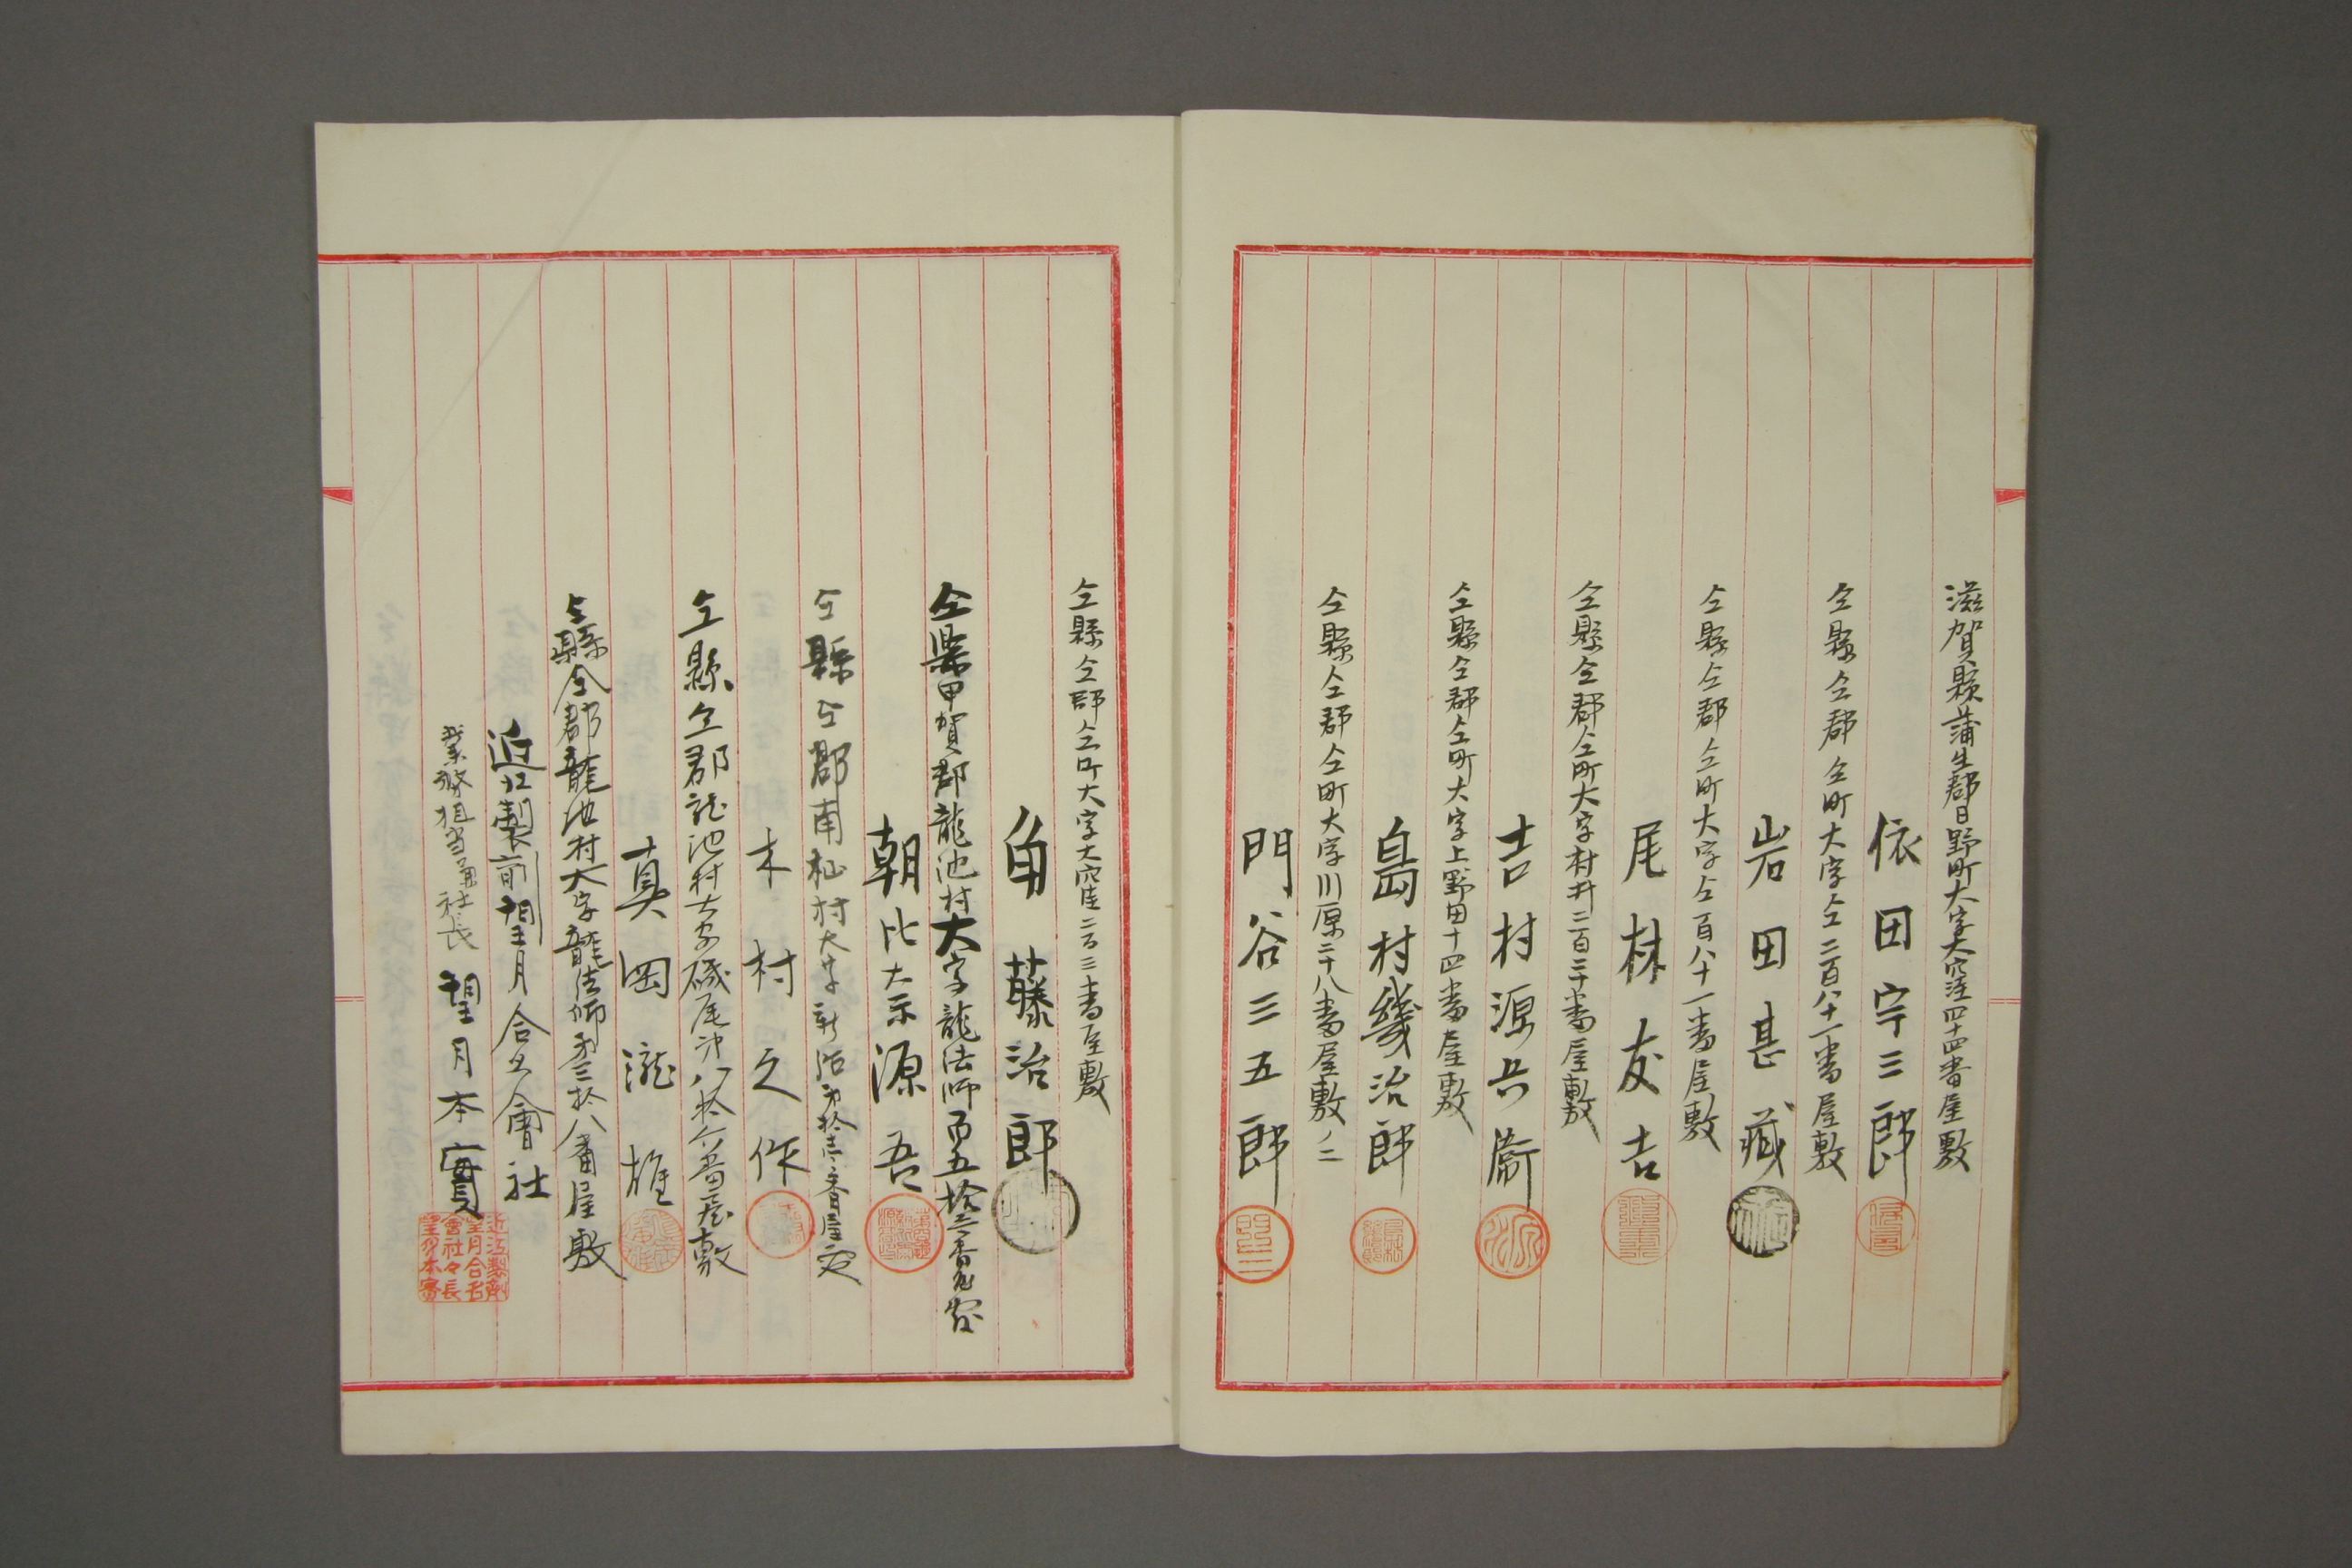 滋賀縣蒲生郡日野町大字大窪四十四番屋敷
依田宇三郎
仝縣仝郡仝町大字仝二百八十一番屋敷
岩田甚藏
仝縣仝郡仝町大字仝百八十一番屋敷
尾林友吉
仝縣仝郡仝町大字村井二百二十番屋敷
吉村源兵衞
仝縣仝郡仝町大字上野田十四番屋敷
島村幾治郎
仝縣仝郡仝町大字川原二十八番屋敷ノ二
門谷三五郎
仝縣仝郡仝町大字大窪二百三番屋敷
角藤治郎
仝縣甲賀郡龍池村大字龍法師百五拾三番屋敷
朝比奈源吾
仝縣仝郡南杣村大字新治第拾壱番屋敷
木村久作
仝縣仝郡龍池村大字磯尾第八拾六番屋敷
真岡瀧雄
仝縣仝郡龍池村大字龍法師第三拾八番屋敷
近江製劑望月合名會社
業務担当兼社長 望月本實
近江製劑
望月合名
會社々長
望月本實